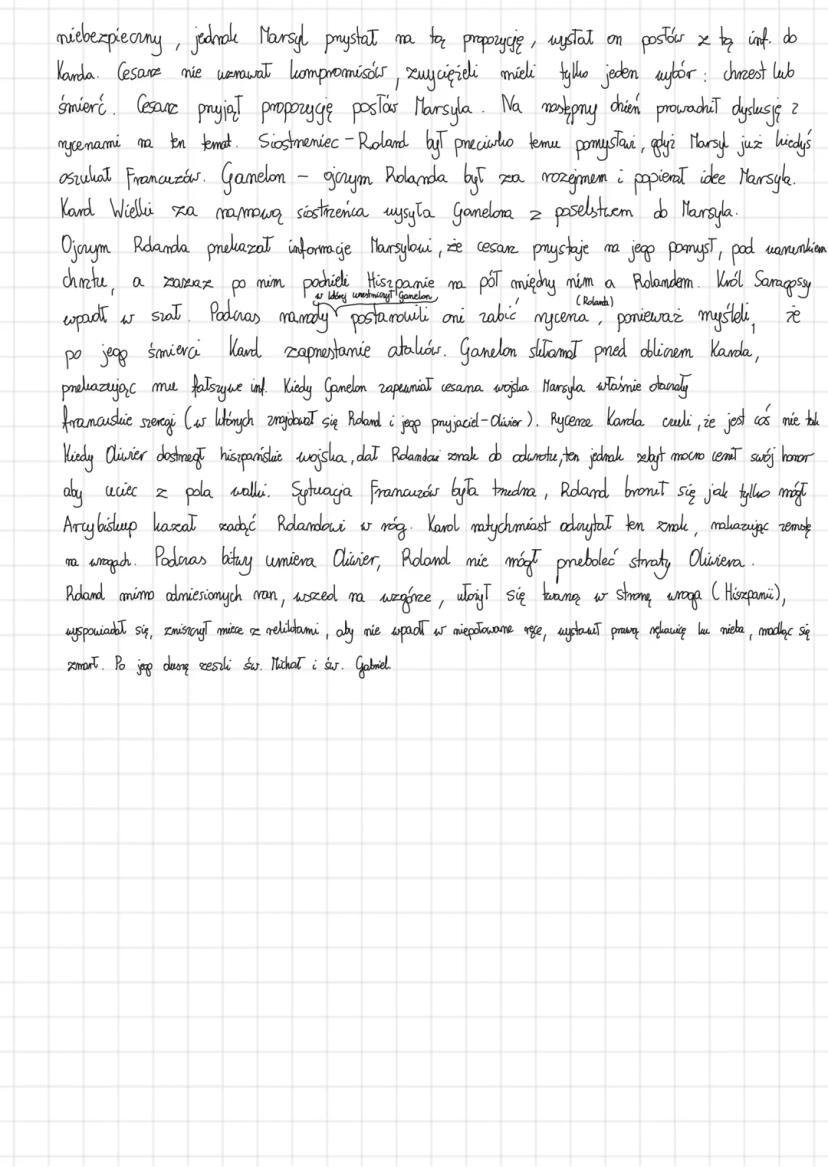 niebezpieczny, jednak Marsyl przystał na tą propozycję, wysłał on posłów z tą inf. do
Karola. Cesarz nie uznawał kompromisów, zwyciężeli mieli tylko jeden wybór: chrzest lub
śmierć. Cesarz przyjął propozycję posłów Marsyla. Na następny dzień prowadził dyskusję z
rycerzami na ten temat. Siostrzeniec - Roland był przeciwko temu pomysłowi, gdyż Marsyl już kiedyś
oszukał Francuzów. Ganelon - ojczym Rolanda był za rozejmem i popierał idee Marsyla.
Karol Wielki za namową siostrzeńca wysyła Ganelona z poselstwem do Marsyla.
Ojczym Rolanda przekazał informacje Marsylowi, że cesarz przystaje na jego pomysł, pod warunkiem
chrztu, a zaraz po nim podzieli Hiszpanie na pół między nim a Rolandem. Król Saragossy
w której uczestniczył Ganelon
(Rolanda)
wpadł w szał. Podczas narady postanowili oni zabić rycerza, ponieważ myśleli, że
po jego śmierci Karol zaprzestanie ataków. Ganelon skłamał przed obliczem Karola,
przekazując mu fałszywe inf. Kiedy Ganelon zapewniał cesarza wojska Marsyla właśnie otaczały
francuskie szeregi (w których znajdował się Roland i jego przyjaciel - Oliwier). Rycerze Karola czuli, że jest coś nie tak
Kiedy Oliwier dostrzegł hiszpańskie wojska, dał Rolandowi znak do odwrotu, ten jednak zebyt mocno cenił swój honor
aby uciec z pola walki. Sytuacja Francuzów była trudna, Roland bronił się jak tylko mógł
Arcybiskup kazał zadąć Rolandowi w róg. Karol natychmiast odczytał ten znak, nakazując zemstę
na wrogach. Podczas bitwy umiera Oliwier, Roland nie mógł przeboleć straty Oliwiera.
Roland mimo odniesionych ran, wszedł na wzgórze, ułożył się twarzą w stronę wroga (Hiszpanii),
wyspowiadał się, zniszczył miecz z relikwiami, aby nie wpadł w niepołowane ręce, wystawił prawą rękawicę ku nieba, modląc się
zmarł. Po jego duszę zeszli św. Michał i św. Gabriel.